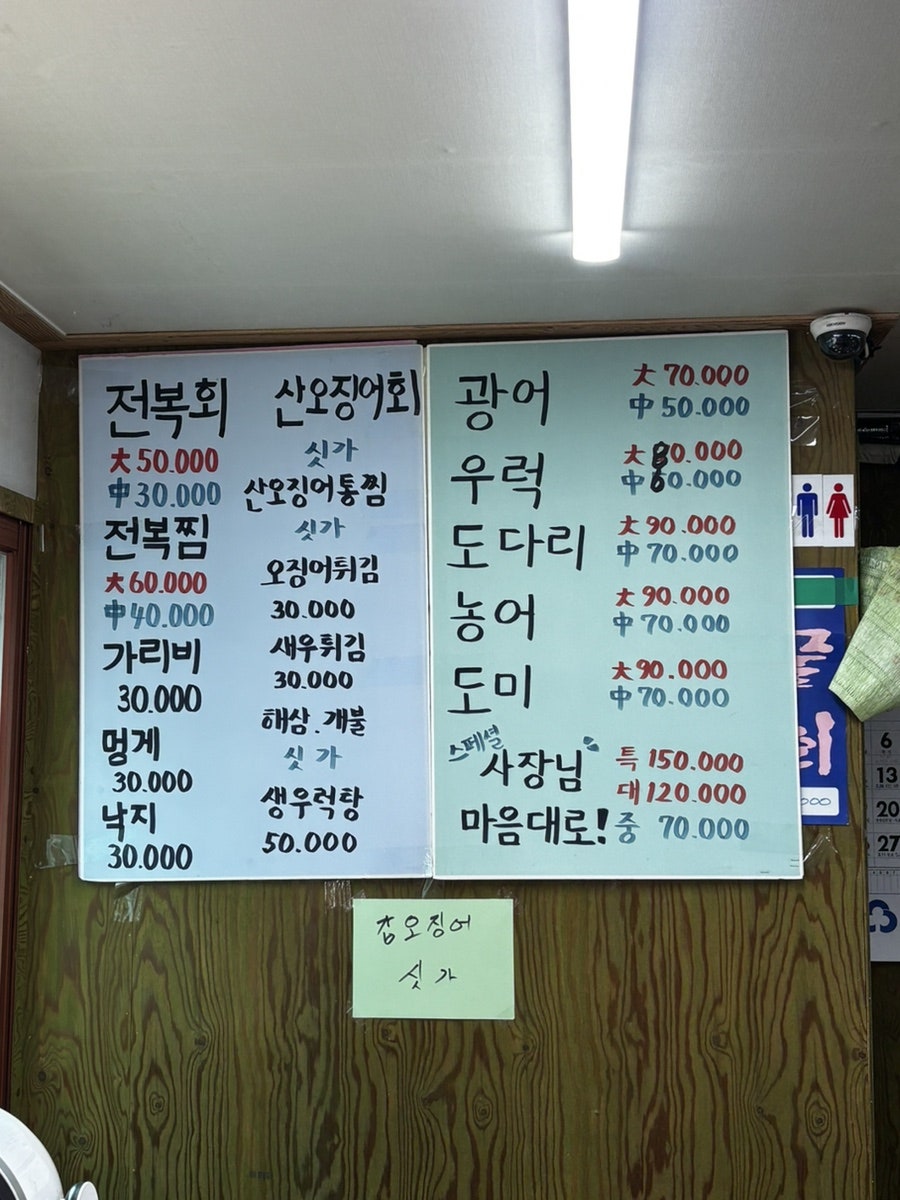 전복회
大 50.000
中 30.000
전복찜
大 60.000
中 40.000
가리비
30.000
멍게
30.000
낙지
30.000
산오징어회
싯가
산오징어통찜
싯가
오징어튀김
30.000
새우튀김
30.000
해삼.개불
싯가
생우럭탕
50.000
광어 大 70.000
中 50.000
우럭 大 80.000
中 60.000
도다리 大 90.000
中 70.000
농어 大 90.000
中 70.000
도미 大 90.000
中 70.000
스페셜
"사장님" 특 150.000
대 120.000
마음대로! 중 70.000
갑오징어
싯가
6
13
20
27